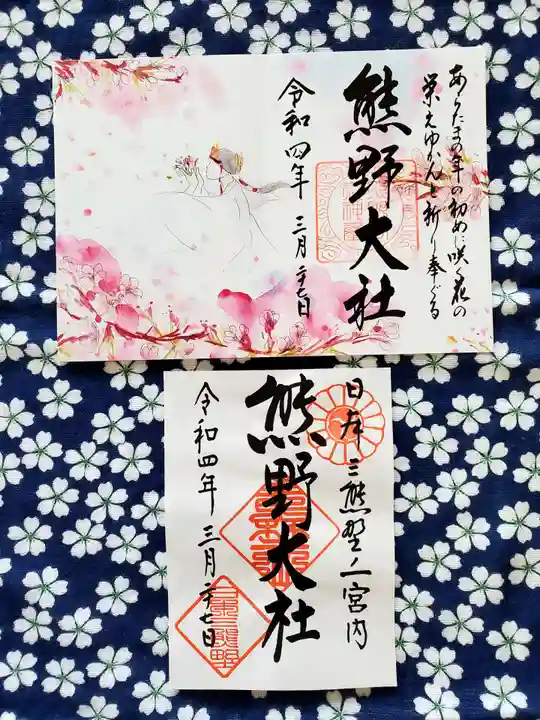 あらたまの年の初めに咲く花の
栄えゆかんと祈り奉ぐる
熊野大社
令和四年 三月二十七日
日本三熊野ノ一宮内
熊野大社
令和四年 三月二十七日